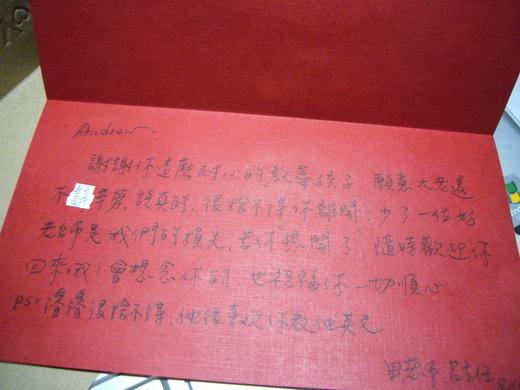 Andrew.
謝謝你這麼耐心的教導孩子,願意大老遠
不辭辛勞,說真的,很捨不得你離開,少了一位好
老師是我們的損失,若你"想開了"隨時歡迎你
回來哦!會想念你的,也祝福你一切順心.
ps:很捨不得,他很喜歡你教他英文
田老師